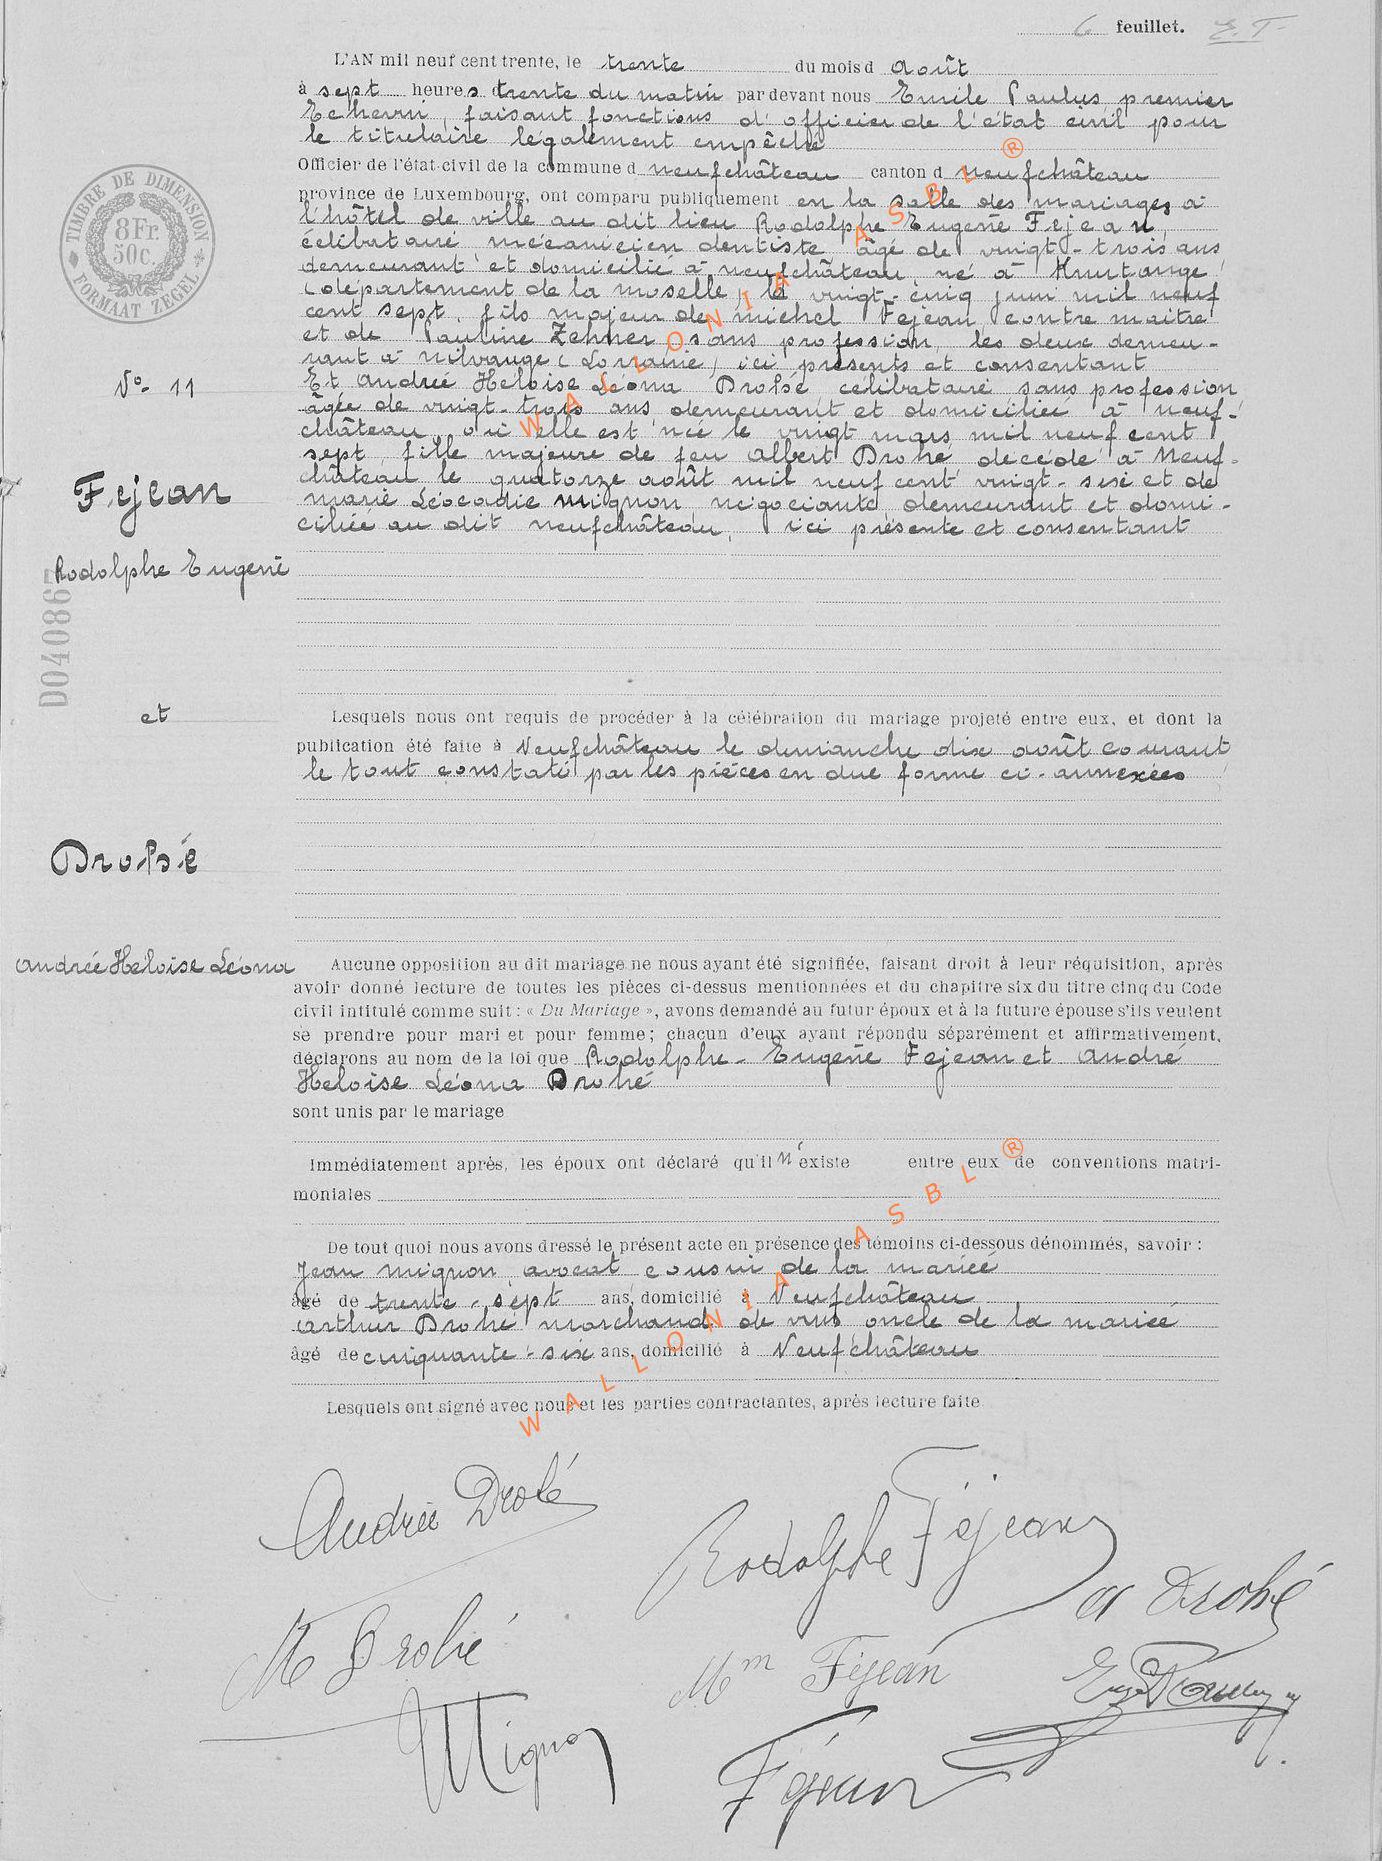 6 feuillet. E. T.
L'AN mil neuf cent trente, le trente du mois d août
à sept heures trente du matin par devant nous Emile Paulus premier
Echevin, faisant fonctions d'officier de l'état civil pour
le titulaire légalement empêché
Officier de l'état-civil de la commune d neufchâteau canton d neufchâteau
province de Luxembourg, ont comparu publiquement en la salle des mariages à
l'hôtel de ville au dit lieu Rodolphe Eugene Fejean,
célibataire mécanicien dentiste âgé de vingt-trois ans
demeurant et domicilié à neufchâteau né à Knutange
(département de la moselle) le vingt-cinq juin mil neuf
cent sept, fils majeur de michel Fejean contre maitre
et de Pauline Zehner sans profession, les deux demeu-
rant à nilvange (Lorraine) ici présents et consentant
Et andrée Heloise Léona Drohé célibataire sans profession
âgée de vingt-trois ans demeurant et domiciliée à neuf-
château où elle est née le vingt mars mil neuf cent
sept, fille majeure de feu albert Drohé décédé à Neuf-
château le quatorze août mil neuf cent vingt-six et de
marie Léocadie mignon négociante demeurant et domi-
ciliée au dit neufchâteau, ici présente et consentant
TIMBRE DE DIMENSION
8 Fr.
50c.
FORMAAT ZEGEL
N° 11
Fejean
Rodolphe Eugene
D040867
et
Drohé
andrée Heloise Léona
Lesquels nous ont requis de procéder à la célébration du mariage projeté entre eux, et dont la
publication été faite à Neufchâteau le dimanche dix août courant
le tout constaté par les pièces en due forme ci-annexées
Aucune opposition au dit mariage ne nous ayant été signifiée, faisant droit à leur réquisition, après
avoir donné lecture de toutes les pièces ci-dessus mentionnées et du chapitre six du titre cinq du Code
civil intitulé comme suit : « Du Mariage », avons demandé au futur époux et à la future épouse s'ils veulent
se prendre pour mari et pour femme ; chacun d'eux ayant répondu séparément et affirmativement,
déclarons au nom de la loi que Rodolphe-Eugene Fejean et André
Heloise Léona Drohé
sont unis par le mariage
Immédiatement après, les époux ont déclaré qu'il n'existe entre eux de conventions matri-
moniales
De tout quoi nous avons dressé le présent acte en présence des témoins ci-dessous dénommés, savoir :
Jean mignon avocat cousin de la mariée
âgé de trente-sept ans, domicilié à Neufchâteau
arthur Drohé marchand de vins oncle de la mariée
âgé de cinquante-six ans, domicilié à Neufchâteau
Lesquels ont signé avec nous et les parties contractantes, après lecture faite
Andrée Drohé
Rodolphe Féjean
a Drohé
M Drohé
Mm Féjean
Mignon
Féjean
WALLONIA ASBL ®
WALLONIA ASBL ®